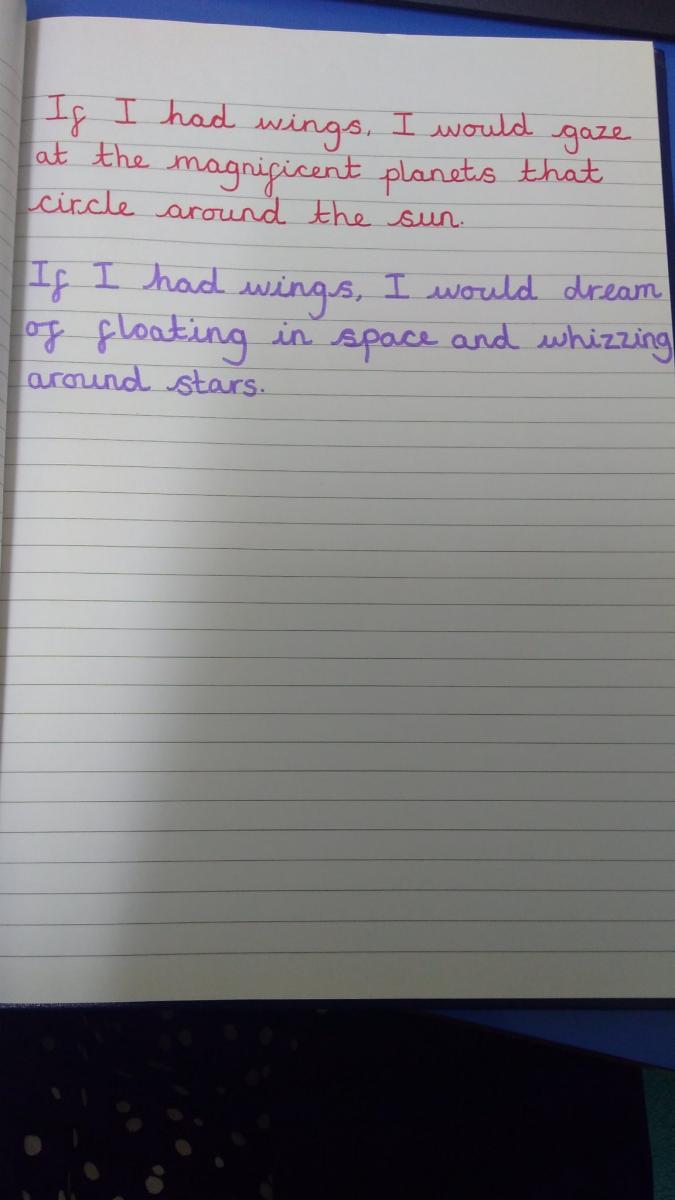 If I had wings, I would gaze
at the magnificent planets that
circle around the sun.
If I had wings, I would dream
of floating in space and whizzing
around stars.